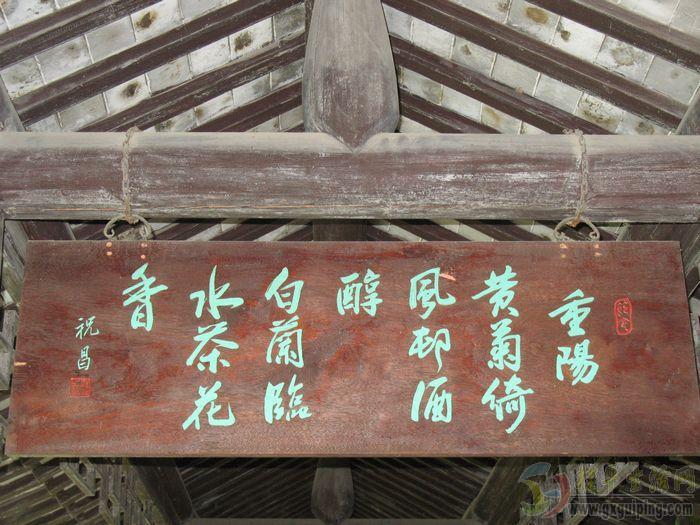 重陽
黄菊倚
風邨酒
醇
白蘭臨
水茶花
香
祝昌
www.gxguiping.com